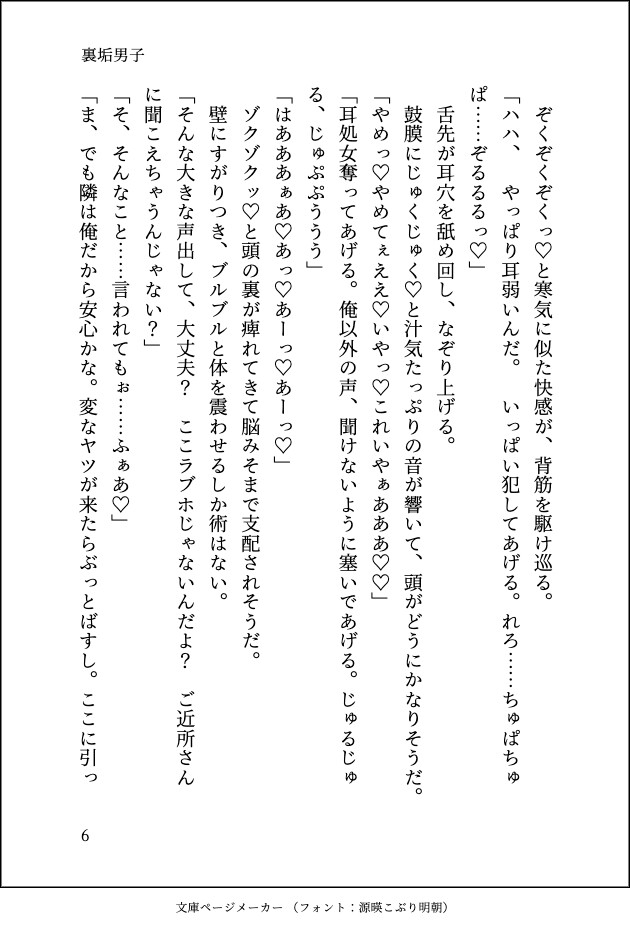 裏垢男子
　ぞくぞくぞくっ♡と寒気に似た快感が、背筋を駆け巡る。
「ハハ、　やっぱり耳弱いんだ。　いっぱい犯してあげる。れろ……ちゅぱちゅ
ぱ……ぞるるるっ♡」
　舌先が耳穴を舐め回し、なぞり上げる。
　鼓膜にじゅくじゅく♡と汁気たっぷりの音が響いて、頭がどうにかなりそうだ。
「やめっ♡やめてぇええ♡いやっ♡これいやぁあああ♡♡」
「耳処女奪ってあげる。俺以外の声、聞けないように塞いであげる。じゅるじゅ
る、じゅぷぷううう」
「はああぁあ♡あっ♡あーっ♡あーっ♡」
　ゾクゾクッ♡と頭の裏が痺れてきて脳みそまで支配されそうだ。
　壁にすがりつき、ブルブルと体を震わせるしか術はない。
「そんな大きな声出して、大丈夫？　ここラブホじゃないんだよ？　ご近所さん
に聞こえちゃうんじゃない？」
「そ、そんなこと……言われてもぉ……ふぁあ♡」
「ま、でも隣は俺だから安心かな。変なヤツが来たらぶっとばすし。ここに引っ
6
文庫ページメーカー（フォント：源暎こぶり明朝）